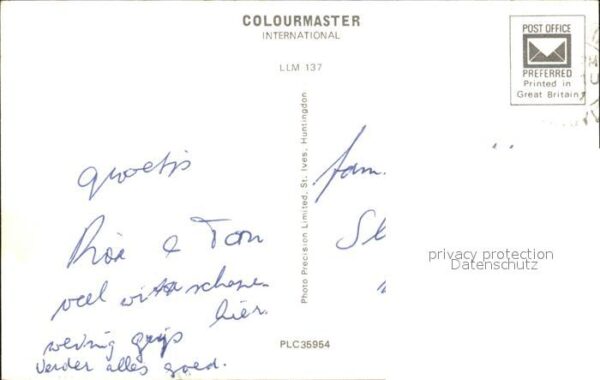 COLOURMASTER
INTERNATIONAL
LLM 137
POST OFFICE
PREFERRED
Printed in
Great Britain
Photo Precision Limited, St. Ives, Huntingdon
groetjes
Ria & Ton
veel witte schapen
weinig grijs hier.
verder alles goed.
fam.
privacy protection
Datenschutz
PLC35954